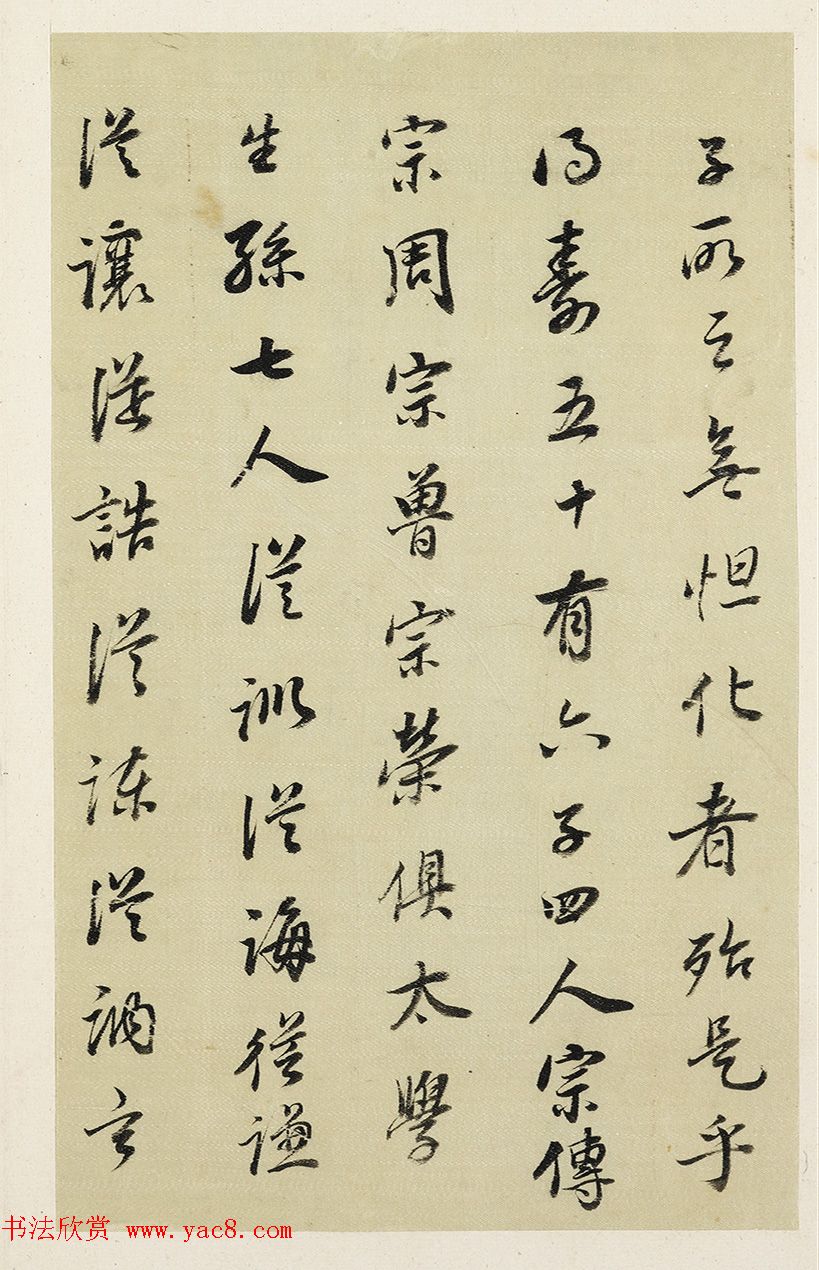 子所云無怛化者殆是乎
得壽五十有六子四人宗傳
宗周宗魯宗榮俱太學
生孫七人從訓從誨從謙
從讓從誥從諫從
书法欣赏 www.yac8.com